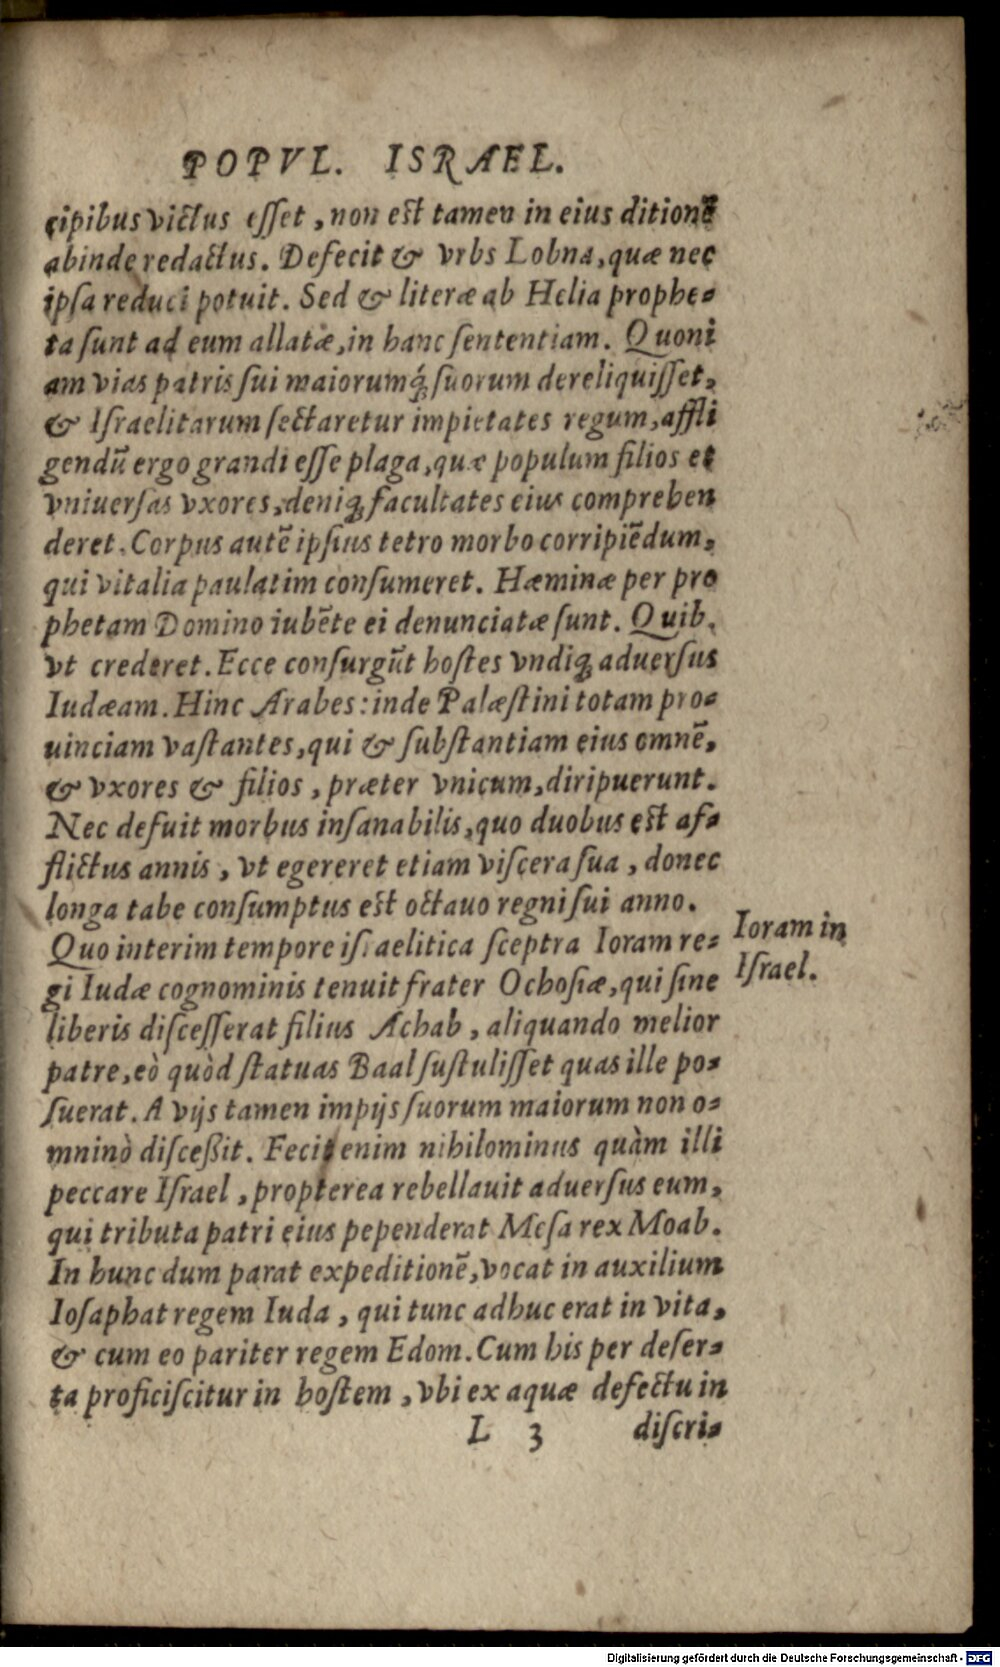 POPVL. ISRAEL.
cipibus victus esset, non est tamen in eius ditionē
abinde redactus. Defecit & vrbs Lobna, quæ nec
ipsa reduci potuit. Sed & literæ ab Helia prophe-
ta sunt ad eum allatæ, in hanc sententiam. Quoni
am vias patris sui maiorumq́; suorum dereliquisset,
& Israelitarum sectaretur impietates regum, affli
gendū ergo grandi esse plaga, quæ populum filios et
vniuersas vxores, deniq; facultates eius compreben
deret. Corpus autē ipsius tetro morbo corripiēdum,
qui vitalia paulatim consumeret. Hæminæ per pro
phetam Domino iubēte ei denunciatæ sunt. Quib.
vt crederet. Ecce consurgūt hostes vndiq; aduersus
Iudæam. Hinc Arabes: inde Palæstini totam pro-
uinciam vastantes, qui & substantiam eius omnē,
& vxores & filios, præter vnicum, diripuerunt.
Nec defuit morbus insanabilis, quo duobus est af-
flictus annis, vt egereret etiam viscera sua, donec
longa tabe consumptus est octauo regni sui anno.
Quo interim tempore israelitica sceptra Ioram re-
gi Iudæ cognominis tenuit frater Ochosiæ, qui sine
liberis discesserat filius Achab, aliquando melior
patre, eò quòd statuas Baal sustulisset quas ille po-
suerat. A vijs tamen impijs suorum maiorum non o-
mninò disceßit. Fecit enim nihilominus quàm illi
peccare Israel, propterea rebellauit aduersus eum,
qui tributa patri eius pependerat Mesa rex Moab.
In hunc dum parat expeditionē, vocat in auxilium
Iosaphat regem Iuda, qui tunc adhuc erat in vita,
& cum eo pariter regem Edom. Cum his per deser-
ta proficiscitur in hostem, vbi ex aquæ defectu in
L 3 discri-
Ioram in
Israel.
Digitalisierung gefördert durch die Deutsche Forschungsgemeinschaft - DFG